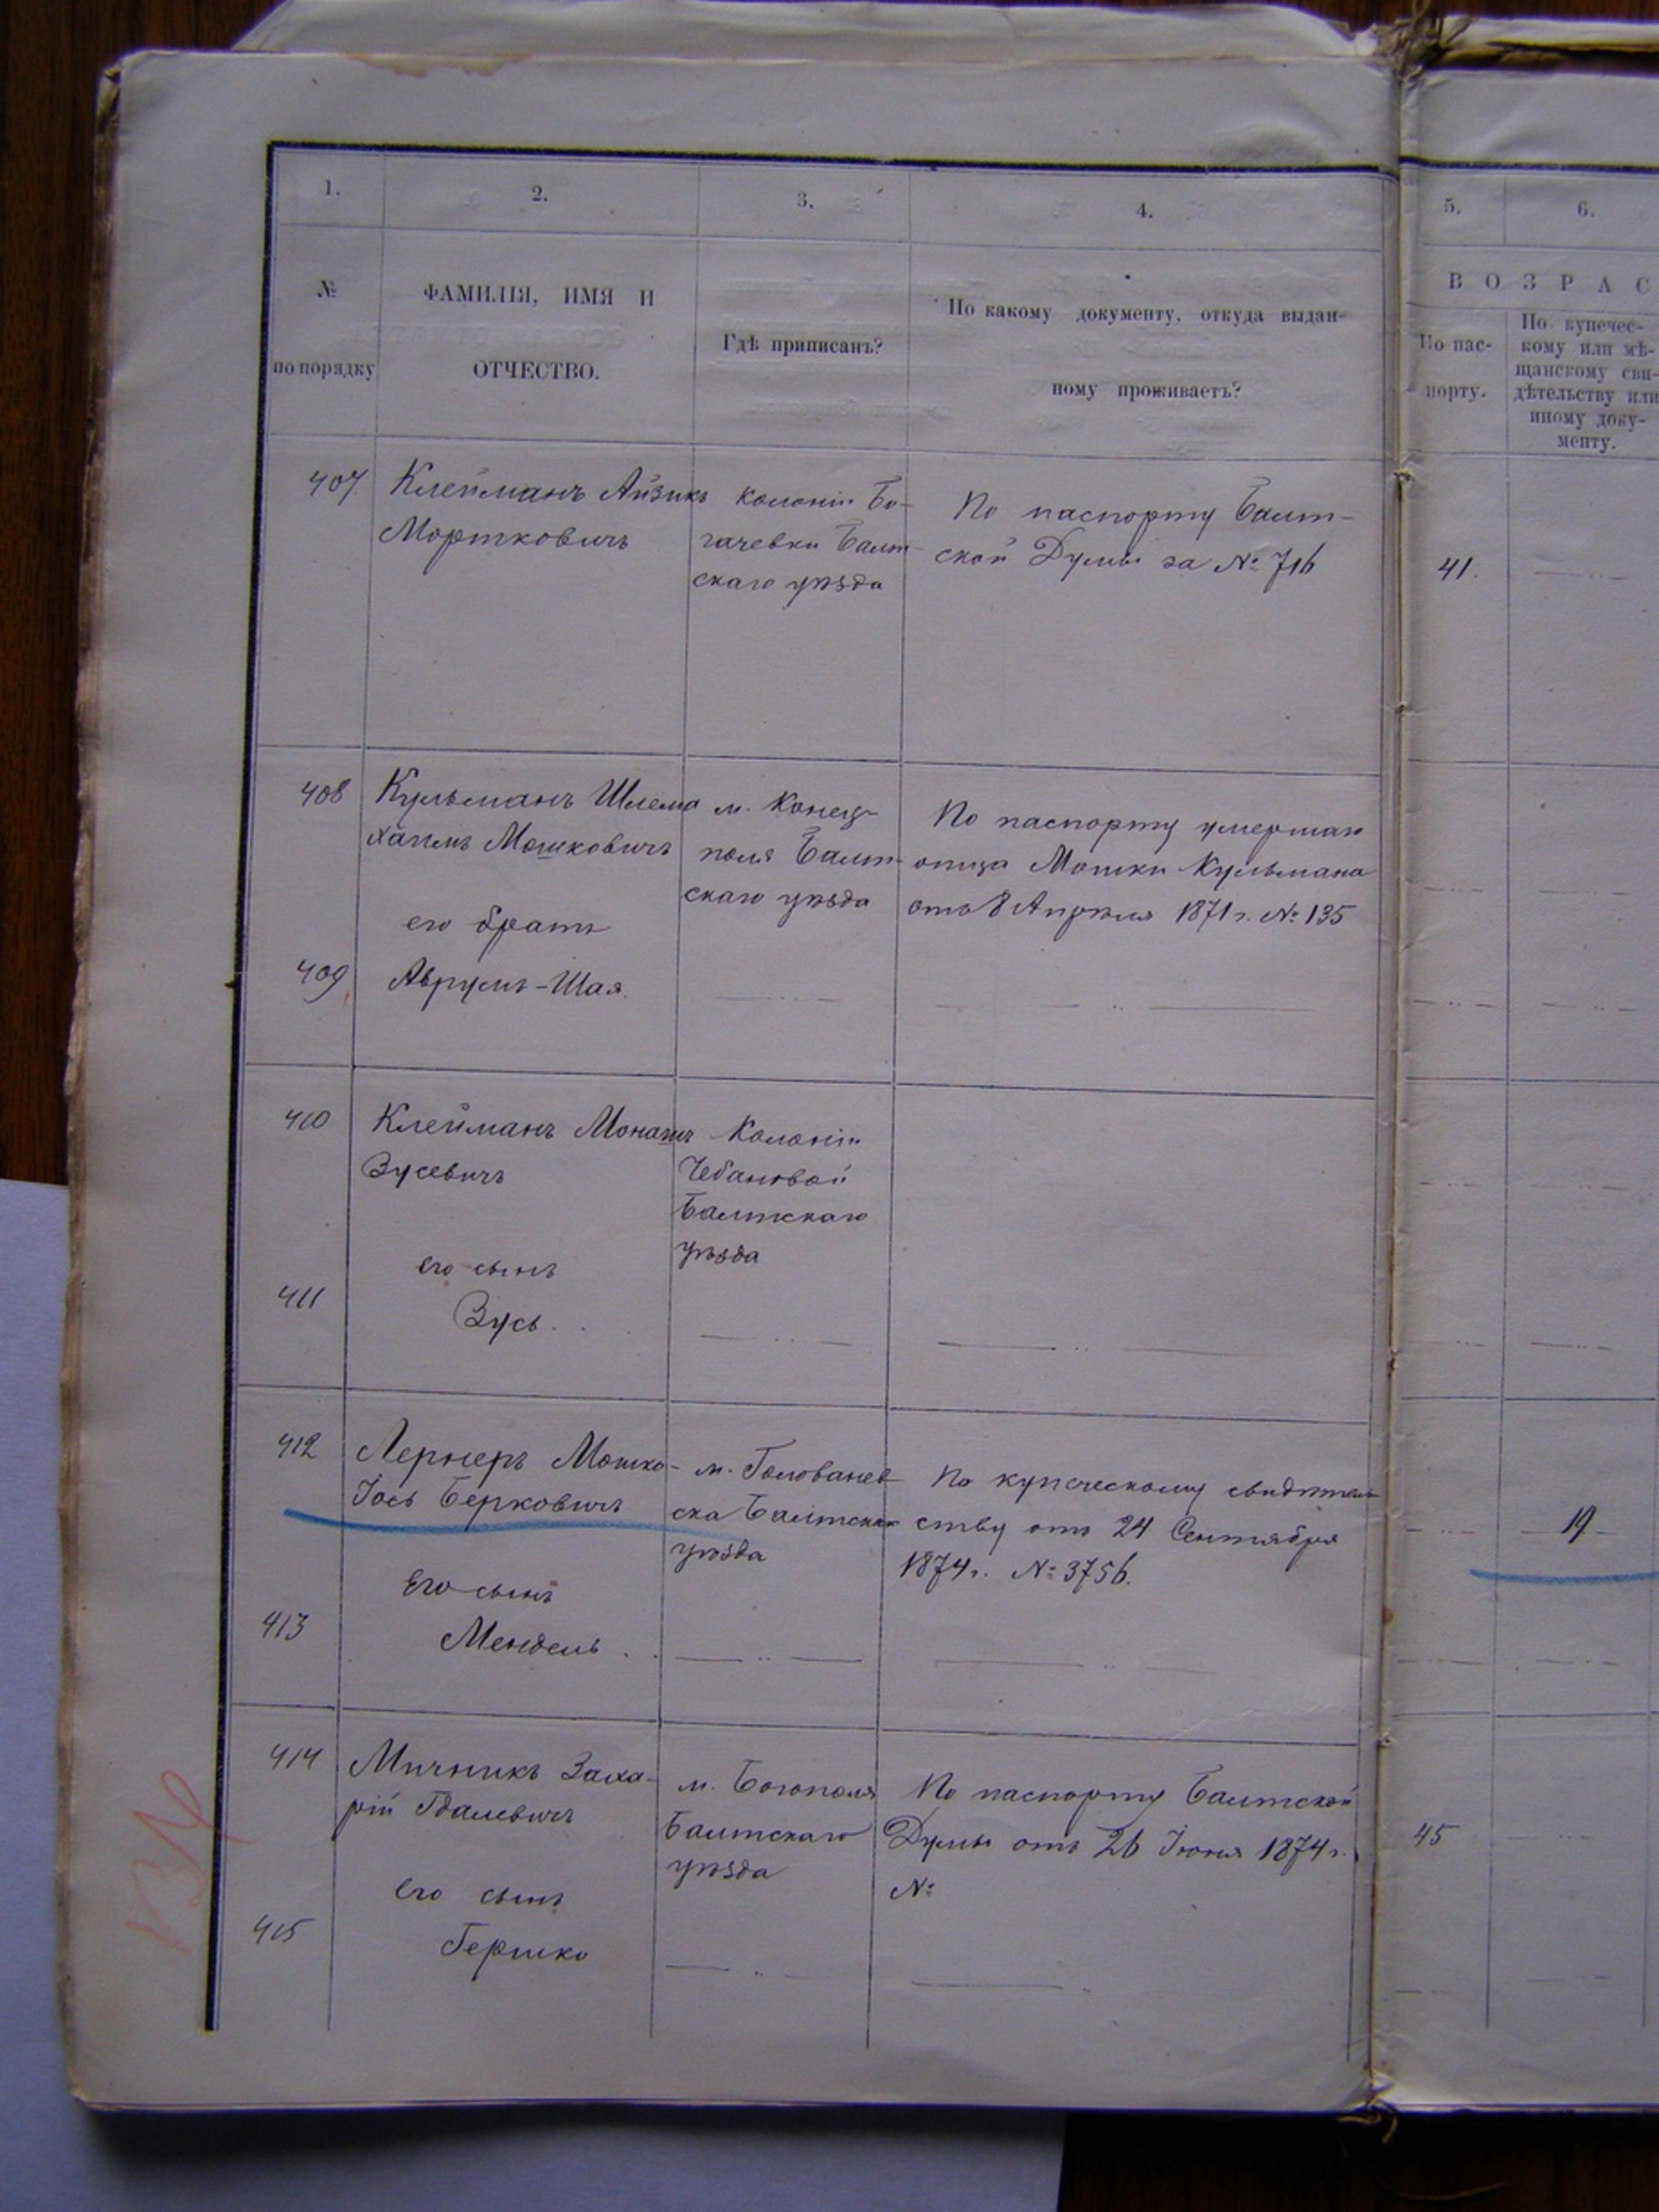 1.
2.
3.
4.
5.
6.
№
по порядку
ФАМИЛІЯ, ИМЯ И
ОТЧЕСТВО.
Гдѣ приписанъ?
По какому документу, откуда выдан-
ному проживаетъ?
ВОЗРАС
По пас-
порту.
По купечес-
кому или мѣ-
щанскому сви-
дѣтельству или
иному доку-
менту.
407
Клейманъ Айзикъ
Мортковичъ
колоніи Бо-
гачевки Балт-
скаго уѣзда
По паспорту Балт-
ской Думы за № 716
41.
408
Кульманъ Шлема
Хаимъ Мошковичъ
м. Конец-
поля Балт-
скаго уѣзда
По паспорту умершаго
отца Мошки Кульмана
отъ 8 Апрѣля 1871 г. № 135
его братъ
409
Аврумъ-Шая
410
Клейманъ
Зусевичъ
Колоніи
Чебановой
Балтскаго
уѣзда
его сынъ
411
Зусь
412
Лернеръ Мошко-
Іось Берковичъ
м. Голованев-
ска Балтскаго
уѣзда
По купеческому свидѣтель-
ству отъ 24 Сентября
1874 г. № 3756.
19
Его сынъ
413
Мендель
414
Мичникъ Заха-
рій Гдалевичъ
м. Богополя
Балтскаго
уѣзда
По паспорту Балтской
Думы отъ 26 Іюня 1874 г.
№
45
его сынъ
415
Гершко